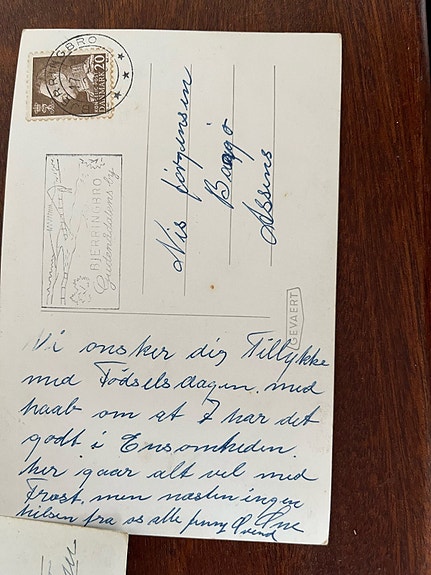 BJERRINGBRO
DANMARK 20
BJERRINGBRO
Gudenådalens by
Nis Jørgensen
Baagø
Assens
GEVAERT
Vi ønsker dig Tillykke
med Fødselsdagen. med
haab om at I har det
godt i Ensomheden.
her gaar alt vel med
Frost. men næsten ingen
hilsen fra os alle